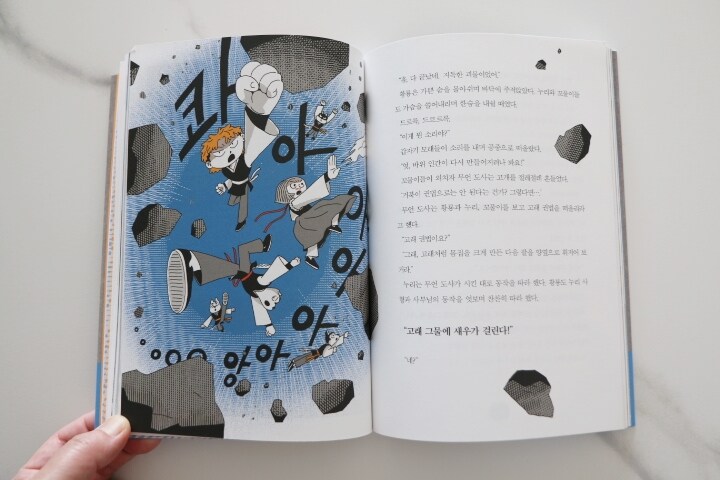 콰
아
아
아
아
아
앙
"휴, 다 끝났네. 지독한 괴물이었어."
황룡은 가쁜 숨을 몰아쉬며 바닥에 주저앉았다. 누리와 꼬물이들
도 가슴을 쓸어내리며 한숨을 내쉴 때였다.
드르륵, 드르르륵.
"이게 뭔 소리야?"
갑자기 모래들이 소리를 내며 공중으로 떠올랐다.
"헐, 바위 인간이 다시 만들어지려나 봐요!"
꼬물이들이 외치자 무런 도사는 고개를 절레절레 흔들었다.
"거북이 권법으로는 안 된다는 건가? 그렇다면…."
무런 도사는 황룡과 누리, 꼬물이들을 보고 고래 권법을 떠올리라
고 했다.
"고래 권법이요?"
"그래, 고래처럼 몸집을 크게 만든 다음 팔을 양옆으로 휘저어 보
거라."
누리는 무런 도사가 시킨 대로 동작을 따라 했다. 황룡도 누리 사
형과 사부님의 동작을 엿보며 찬찬히 따라 했다.
"고래 그물에 새우가 걸린다!"
"네?"